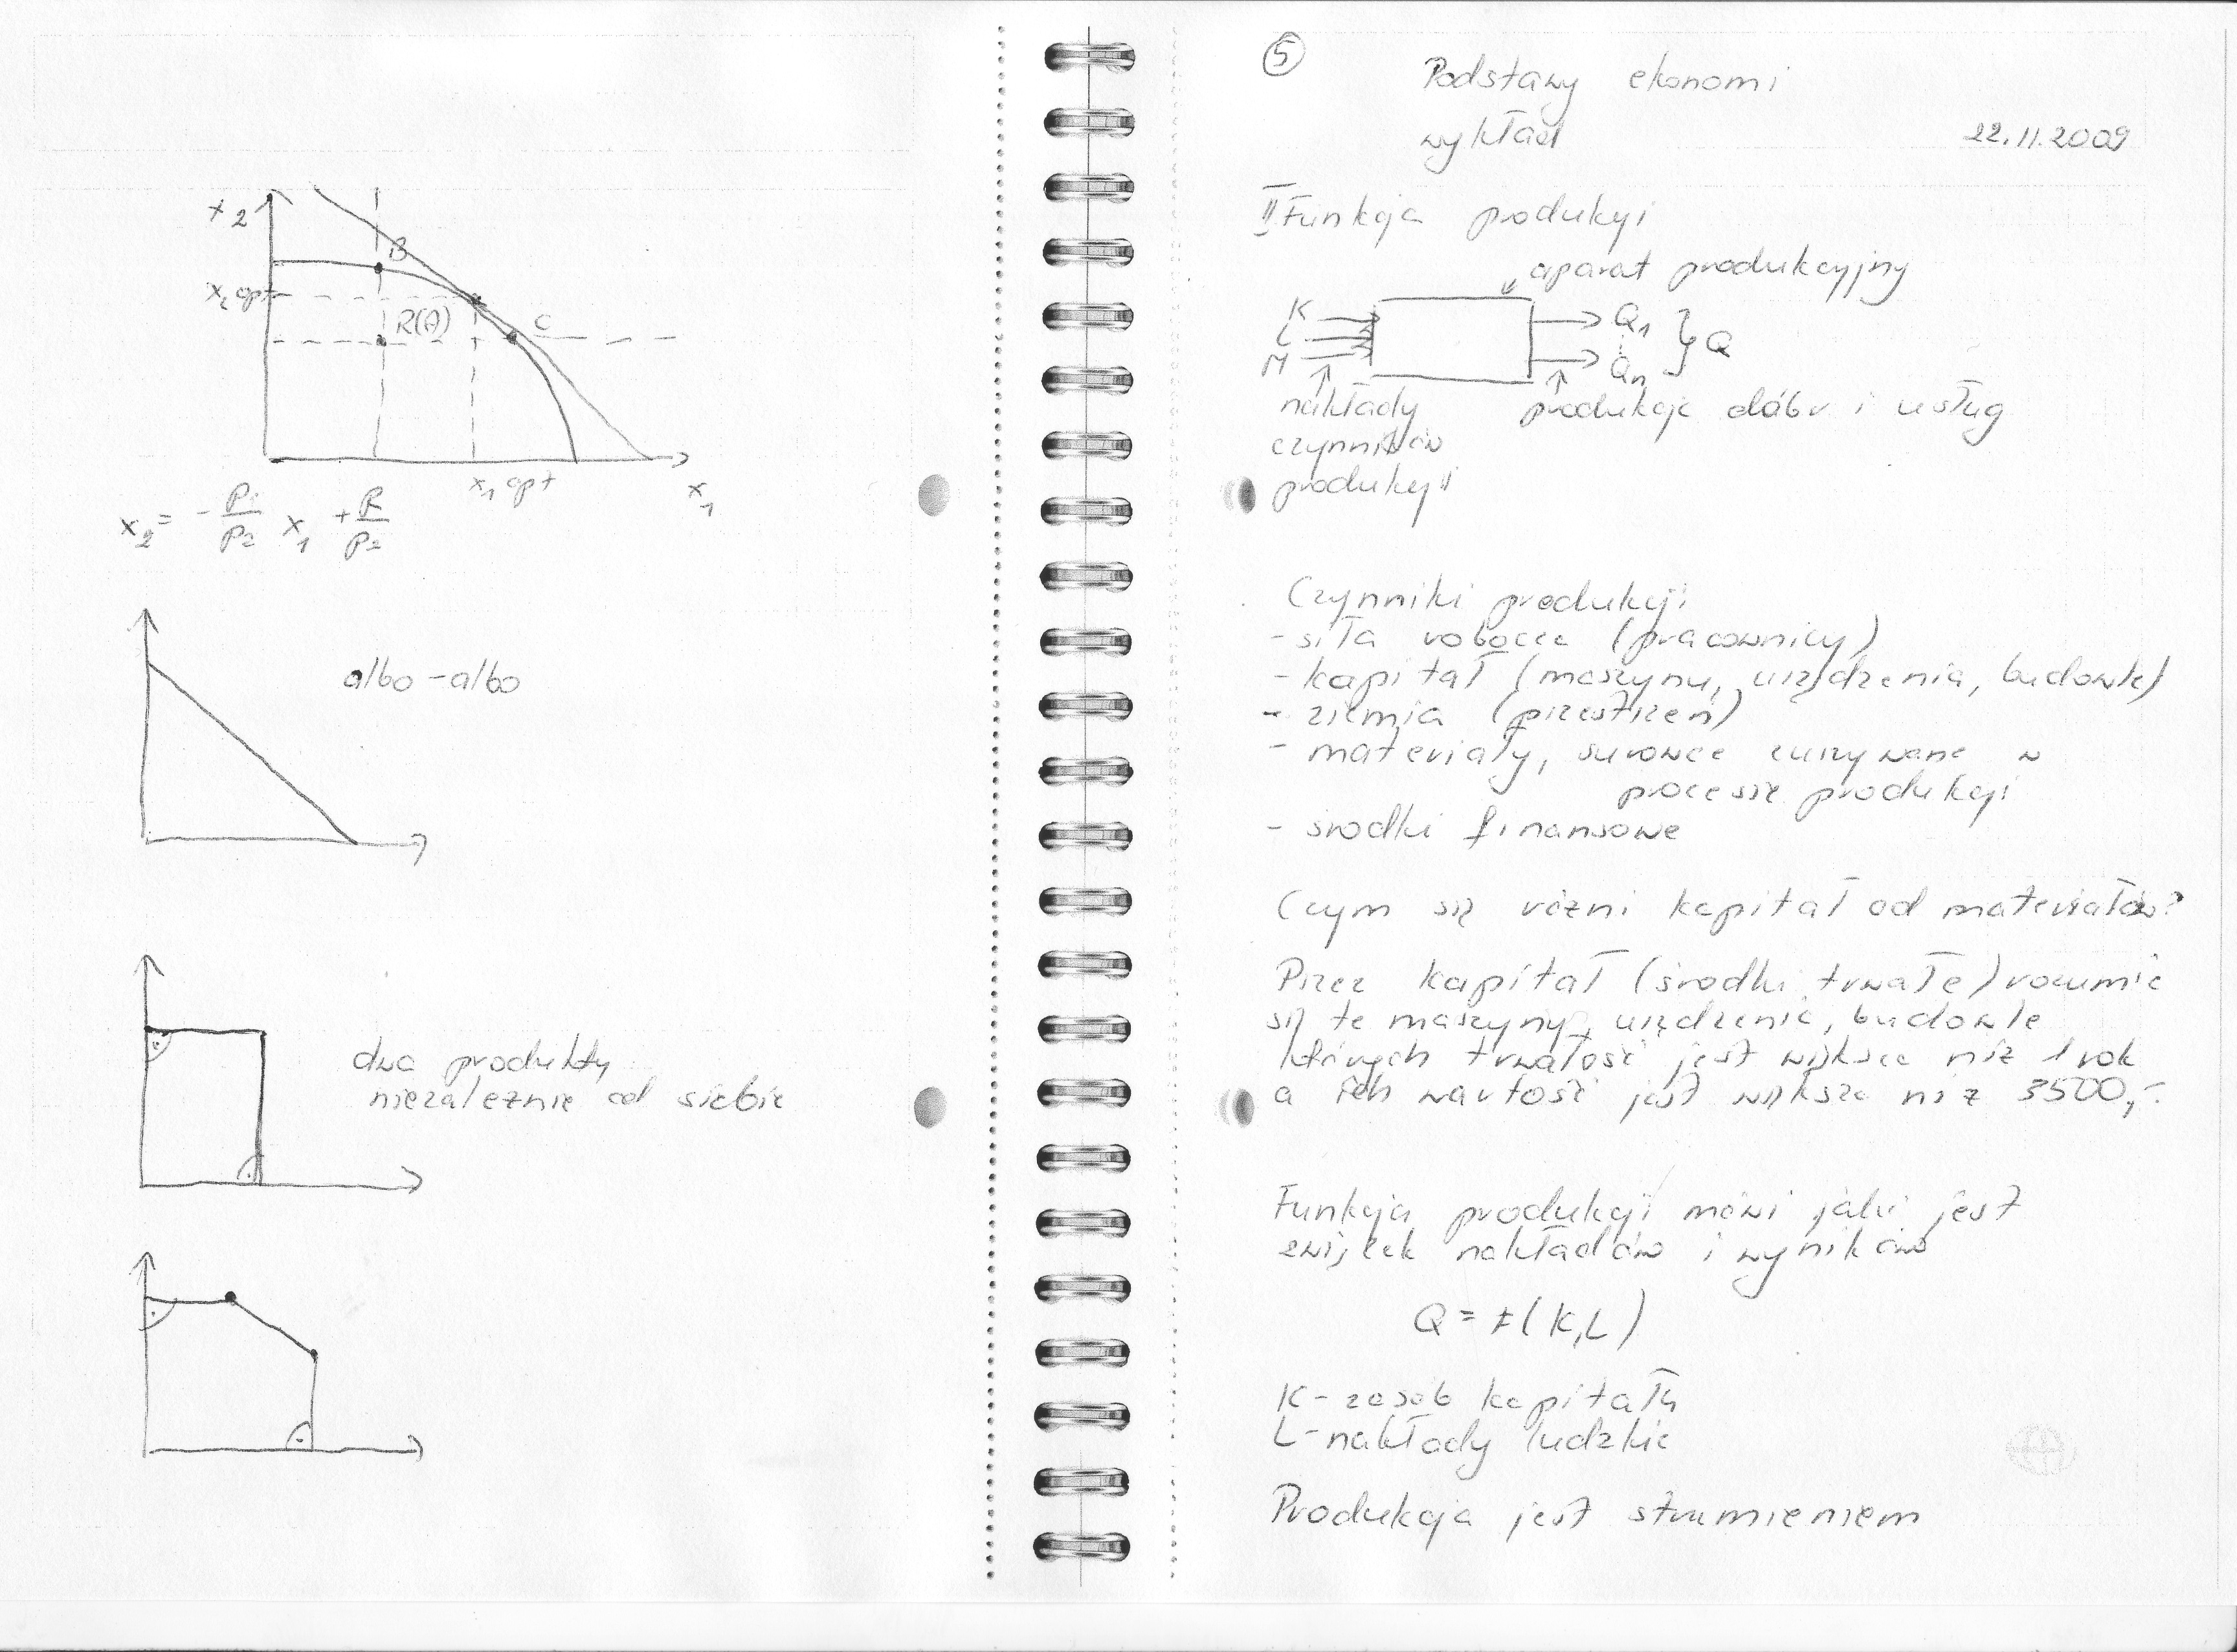 x2
B
x2 opt
R(A)
C
x1 opt
x1
x2 = - P1/P2 x1 + R/P2
albo - albo
dwa produkty
niezależnie od siebie
5
Podstawy ekonomi
wykład
22.11.2009
II Funkcja produkcji
aparat produkcyjny
K
L
M
Q1
Qn
Q
nakłady
czynników
produkcji
produkcja dóbr i usług
Czynniki produkcji
- siła robocza (pracownicy)
- kapitał (maszyny, urządzenia, budowle)
- ziemia (przestrzeń)
- materiały, surowce zużywane w
procesie produkcji
- środki finansowe
Czym się różni kapitał od materiałów?
Przez kapitał (środki trwałe) rozumie
się te maszyny, urządzenia, budowle
których trwałość jest większa niż 1 rok
a ich wartość jest większa niż 3500,-
Funkcja produkcji mówi jaki jest
związek nakładów i wyników
Q = f(K,L)
K - zasób kapitału
L - nakłady ludzkie
Produkcja jest strumieniem